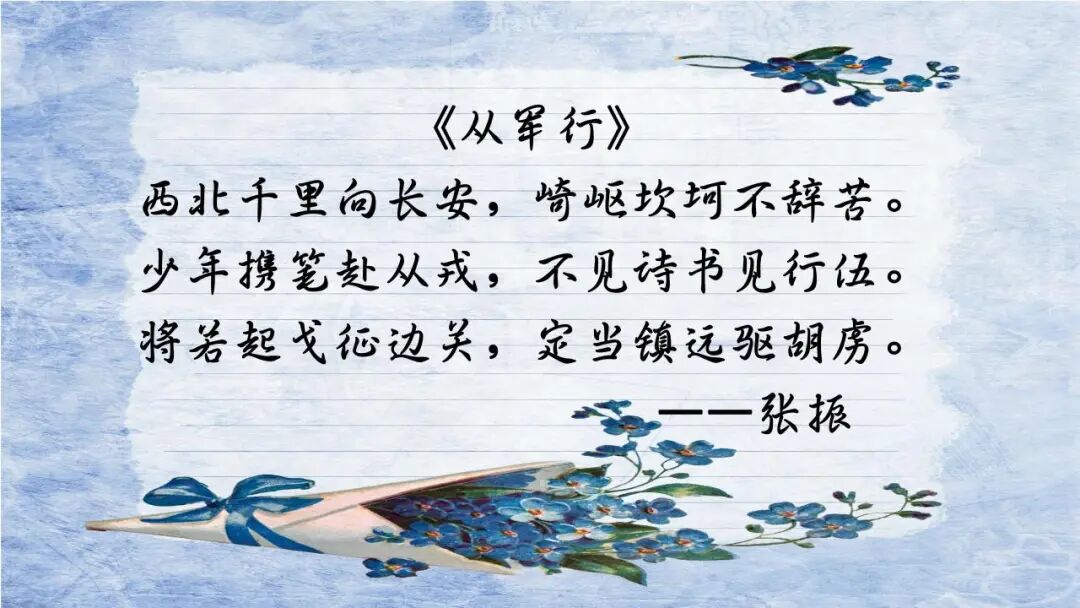 《从军行》
西北千里向长安，崎岖坎坷不辞苦。
少年携笔赴从戎，不见诗书见行伍。
将若起戈征边关，定当镇远驱胡虏。
——张振